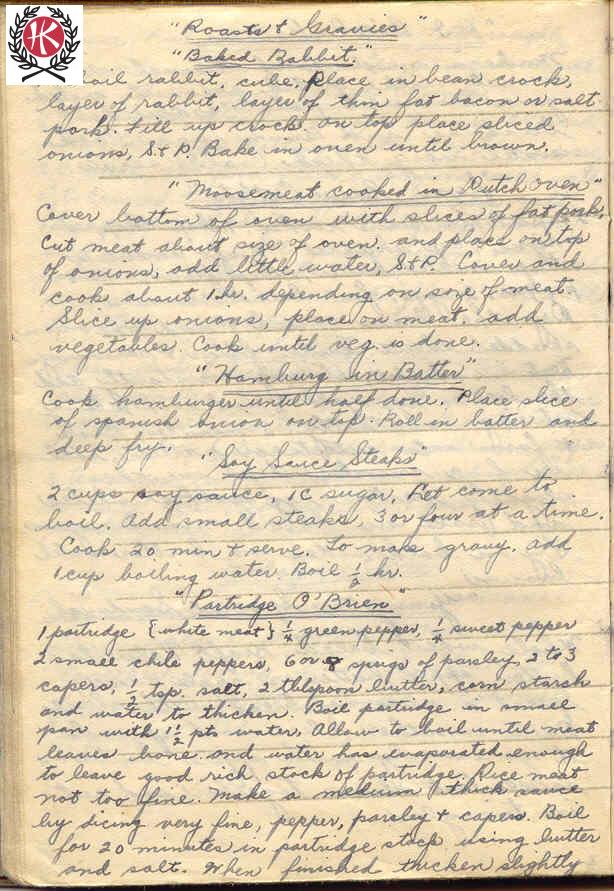 HK
"Roasts & Gravies"
"Baked Rabbit."
boil rabbit, cube, place in bean crock,
layer of rabbit, layer of thin fat bacon or salt
pork. Fill up crock. On top place sliced
onions, S+P. Bake in oven until brown.
"Moosemeat cooked in Dutch Oven"
Cover bottom of oven with slices of fat pork,
Cut meat about size of oven. and place on top
of onions, add little water, S+P. Cover and
cook about 1 hr. depending on size of meat.
Slice up onions, place on meat. add
vegetables. Cook until veg. is done.
"Hamburg in Batter"
Cook hamburger until half done. Place slice
of spanish onion on top. Roll in batter and
deep fry.
"Soy Sauce Steaks"
2 cups soy sauce, 1C sugar, Let come to
boil. Add small steaks, 3 or four at a time.
Cook 20 min + serve. To make gravy. add
1 cup boiling water Boil ½ hr.
"Partridge O'Brien"
1 partridge {white meat} ¼ green pepper, ¼ sweet pepper
2 small chile peppers, 6 or 8 sprigs of parsley, 2 to 3
capers, ½ tsp. salt, 2 tblspoon butter, corn starch
and water to thicken. Boil partridge in small
pan with 1½ pts water. Allow to boil until meat
leaves bone and water has evaporated enough
to leave good rich stock of partridge. Rice meat
not too fine. Make a medium thick sauce
by dicing very fine, pepper, parsley + capers. Boil
for 20 minutes in partridge stock using butter
and salt. When finished thicken slightly